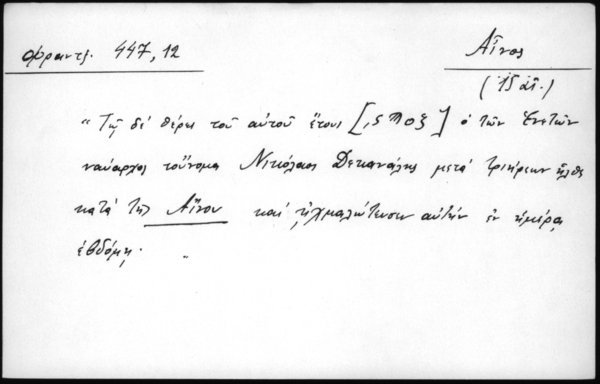 Φραντζ. 447, 12
Αἶνος
(15 αἰ.)
“Τῷ δὲ θέρει τοῦ αὐτοῦ ἔτους [͵ςϠοξ] ὁ τῶν Ἑνετῶν
ναύαρχος τοὔνομα Νικόλαος Δεκανάλης μετὰ τριήρεων ἦλθε
κατὰ τῆς Αἴνου καὶ ᾐχμαλώτευσεν αὐτὴν ἐν ἡμέρᾳ
ἑβδόμῃ. ”